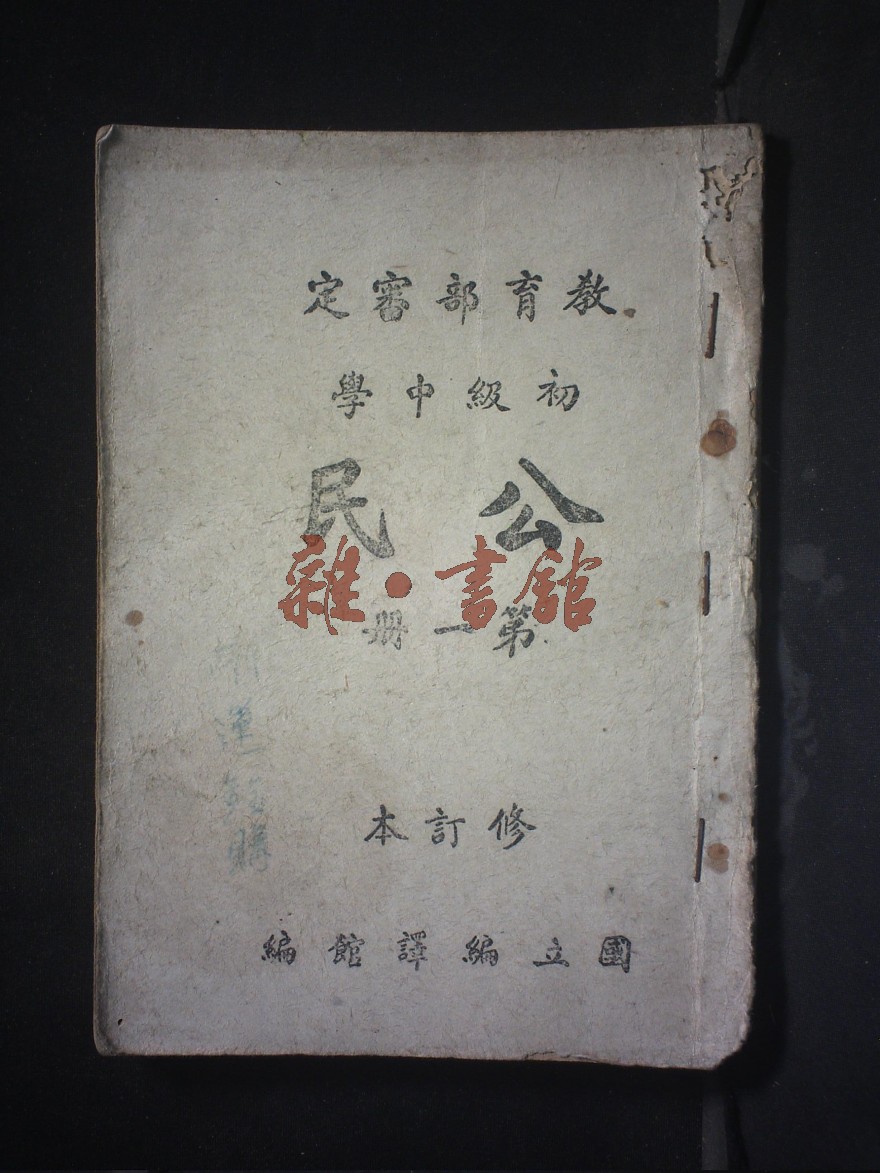 教育部審定
初級中學
公民
第一冊
修訂本
國立編譯館編
雜·書館